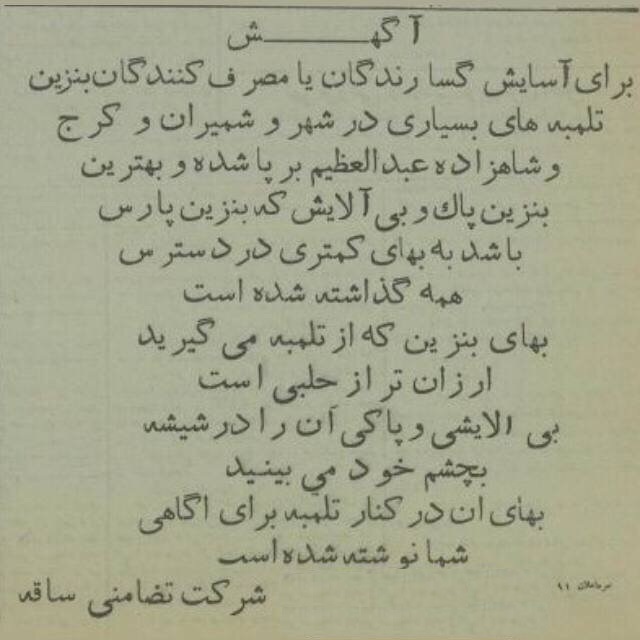 آگهش
برای آسایش گسارندگان یا مصرف کنندگان بنزین
تلمبه های بسیاری در شهر و شمیران و کرج
و شاهزاده عبدالعظیم بر پا شده و بهترین
بنزین پاك و بی آلایش که بنزین پارس
باشد به بهای کمتری در دسترس
همه گذاشته شده است
بهای بنزین که از تلمبه می گیرید
ارزان تر از حلبی است
بی الایشی و پاکی آن را در شیشه
بچشم خود می بینید
بهای ان در کنار تلمبه برای اگاهی
شما نوشته شده است
۱۱
شرکت تضامنی ساقه